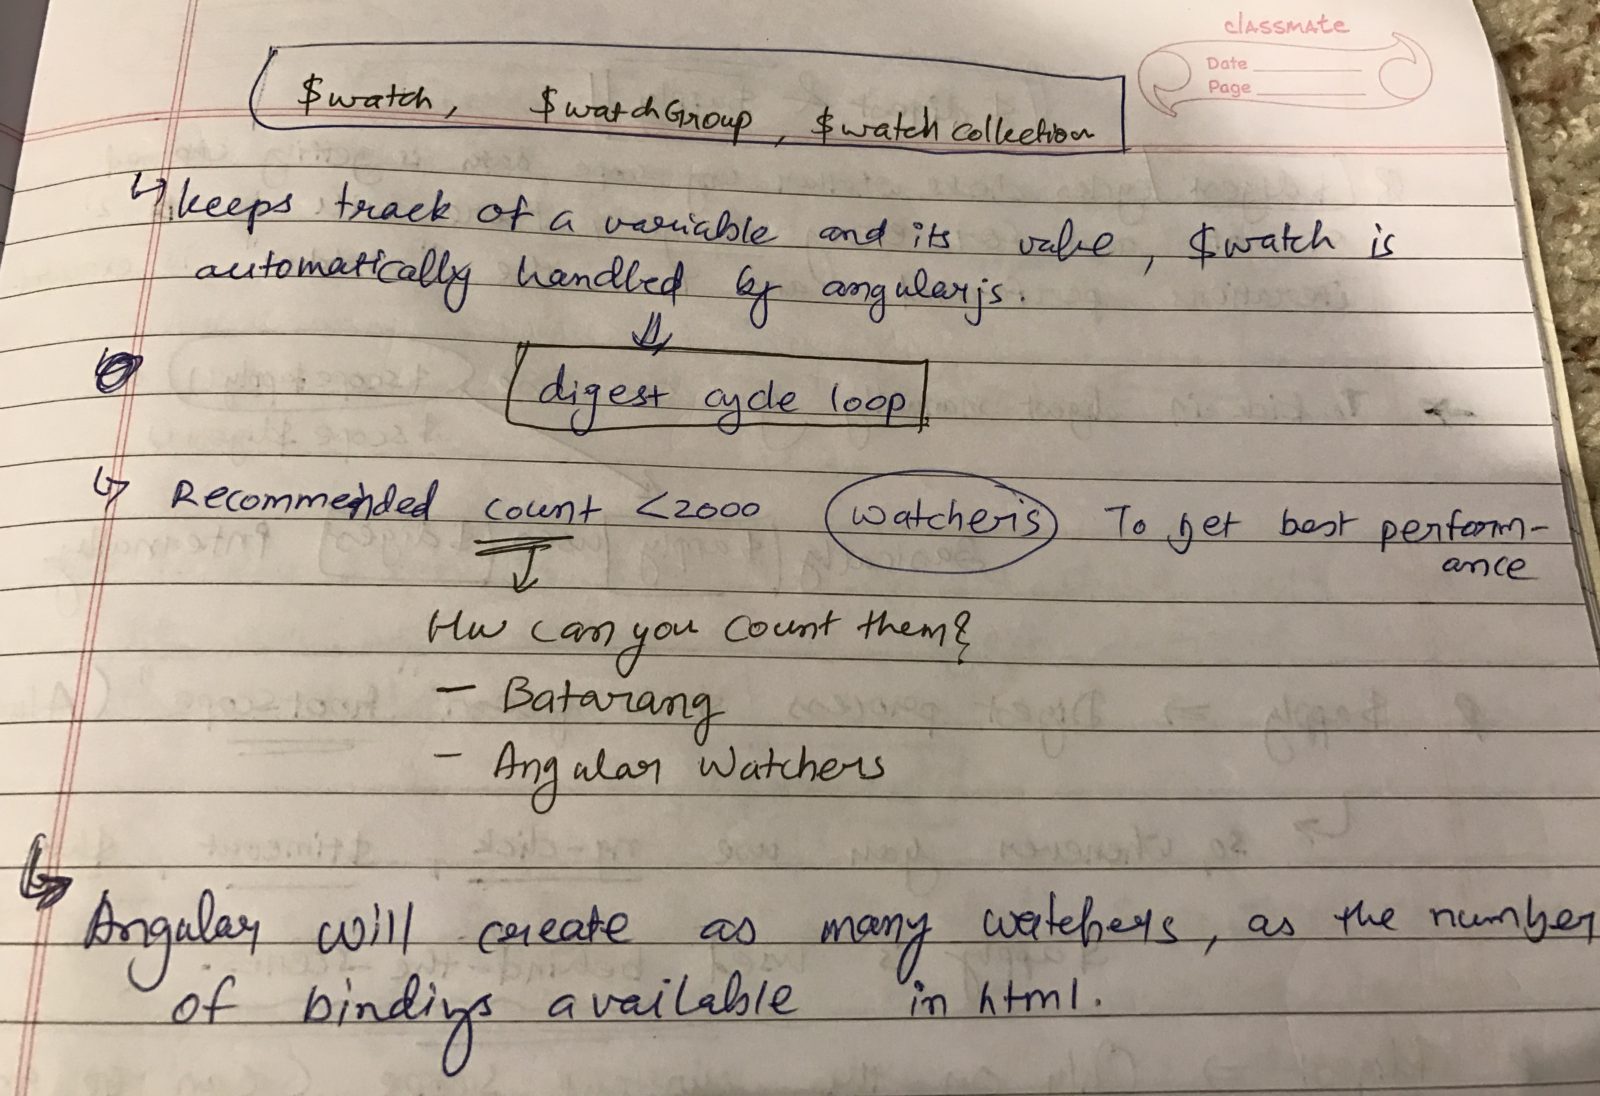 classmate
Date
Page
$watch, $watchGroup, $watchcollection
↳ keeps track of a variable and its value, $watch is
automatically handled by angularjs.
digest cycle loop
↳ Recommended count <2000 watchers To get best perform-
ance
How can you count them?
- Batarang
- Angular Watchers
↳ Angular will create as many watchers, as the number
of bindings available in html.